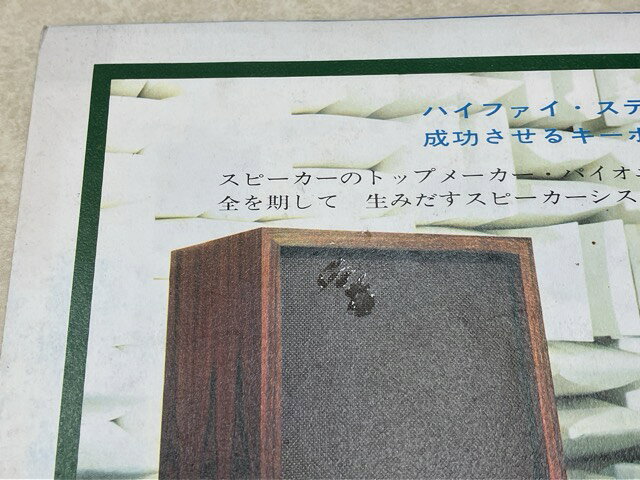 ハイファイ・ステ
成功させるキーポ
スピーカーのトップメーカー・パイオニ
全を期して 生みだすスピーカーシス